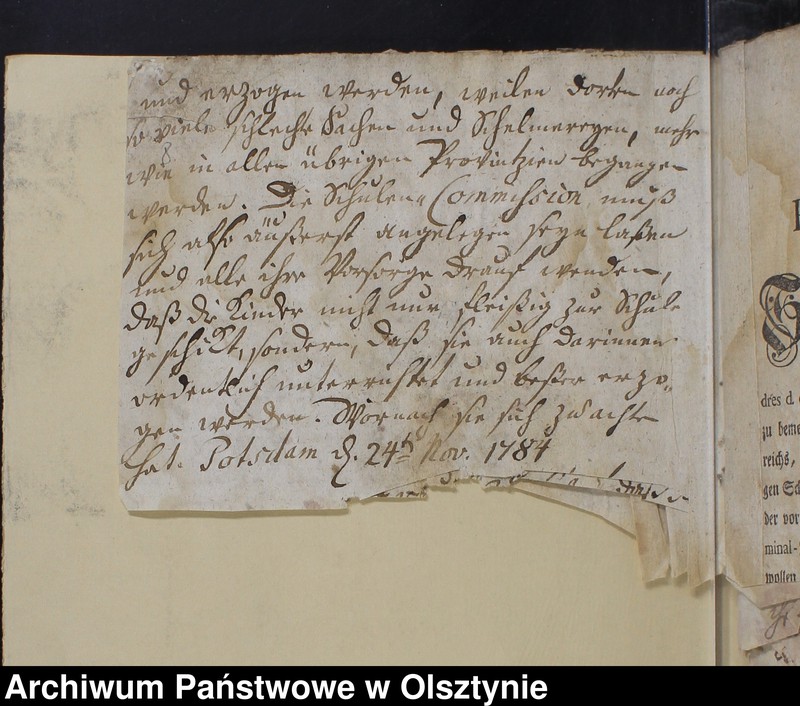 und erzogen werden, weilen dorten noch
so viele schlechte Sachen und Schelmereyen, mehr
wie in allen übrigen Provintzien begangen
werden. Die Schulen Commission muß
sich also äußerst angelegen seyn laßen
und alle ihre Vorsorge drauf wenden,
daß die Kinder nicht nur fleißig zur Schule
geschikt, sondern, daß sie auch darinnen
ordentlich unterrichtet und beßer erzo-
gen werden. Wornach sie sich zu achten
hat. Potsdam d. 24t Nov. 1784
dres d.
zu beme
reichs,
gen Sc
der vor
minal-
wollen
Archiwum Państwowe w Olsztynie